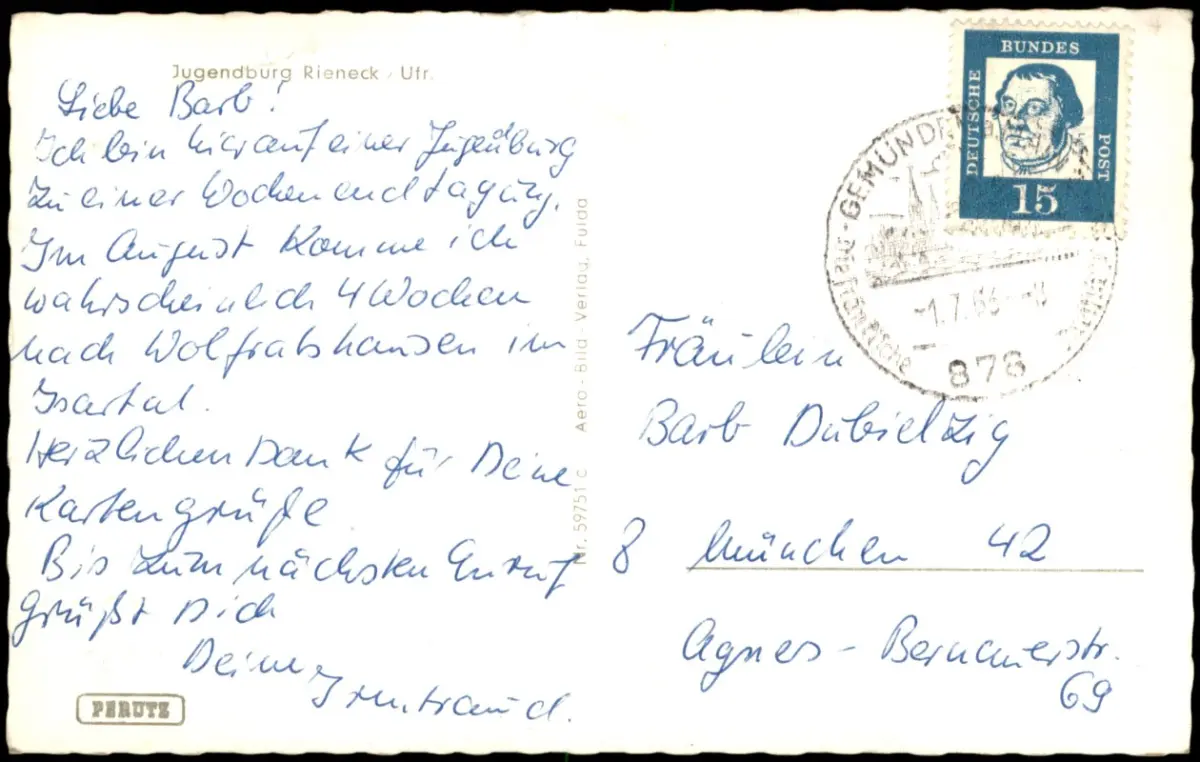 Jugendburg Rieneck / Ufr.
Liebe Barb!
Ich bin hier auf einer Jugendburg
zu einer Wochenendtagung.
Im August komme ich
wahrscheinlich 4 Wochen
nach Wolfratshausen im
Isartal.
Herzlichen Dank für Deine
Kartengrüße
Bis zum nächsten Anruf
grüßt Dich
Deine Irmtraud.
PERUTZ
Nr. 59751 c Aero-Bild-Verlag, Fulda
BUNDES
DEUTSCHE
POST
15
GEMÜNDEN
878
Fräulein
Barb Dubielzig
8 München 42
Agnes-Bernauerstr.
69